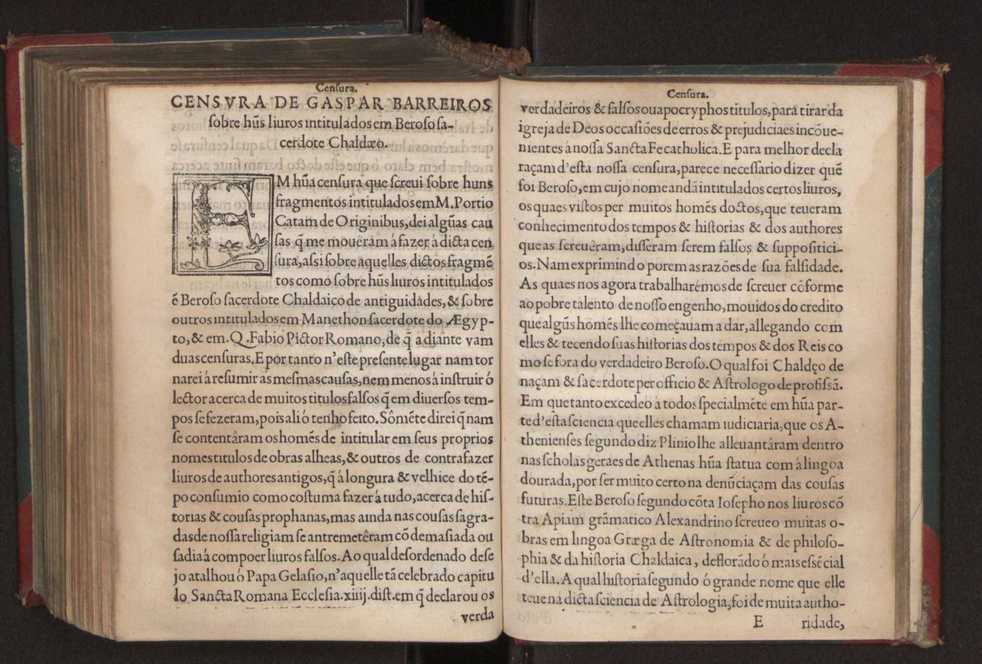 Censura.
CENSVRA DE GASPAR BARREIROS
sobre hũs liuros intitulados em Beroso sa-
cerdote Chaldæo.
EM hũa censura que screui sobre huns
fragmentos intitulados em M. Portio
Catam de Originibus, dei algũas cau
sas q̃ me moueram á fazer á dicta cen
sura, assi sobre aquelles dictos fragmẽ
tos como sobre hũs liuros intitulados
ẽ Beroso sacerdote Chaldaico de antiguidades, & sobre
outros intitulados em Manethon sacerdote do Ægyp-
to, & em. Q. Fabio Pictor Romano, de q̃ a diante vam
duas censuras. E por tanto n'este presente lugar nam tor
narei á resumir as mesmas causas, nem menos à instruir ó
lector acerca de muitos titulos falsos q̃ em diuersos tem-
pos se fezeram, pois ali ó tenho feito. Sòmẽte direi q̃ nam
se contentàram os homẽs de intitular em seus proprios
nomes titulos de obras alheas, & outros de contrafazer
liuros de authores antigos, q̃ á longura & velhice do tẽ-
po consumio como costuma fazer á tudo, acerca de his-
torias & cousas prophanas, mas ainda nas cousas sagra-
das de nossa religiam se antremetêram cõ demasiada ou
sadia á compoer liuros falsos. Ao qual desordenado dese
jo atalhou ó Papa Gelasio, n'aquelle tã celebrado capitu
lo Sancta Romana Ecclesia. xiiij. dist. em q̃ declarou os
verda
Censura.
verdadeiros & falsos ou apocryphos titulos, para tirar da
igreja de Deos occasiões de erros & prejudiciaes incõue-
nientes à nossa Sancta Fe catholica. E para melhor decla
raçam d'esta nossa censura, parece necessario dizer quẽ
foi Beroso, em cujo nome andã intitulados certos liuros,
os quaes vistos per muitos homẽs doctos, que teueram
conhecimento dos tempos & historias & dos authores
que as screuêram, disseram serem falsos & suppositici-
os. Nam exprimindo porem as razões de sua falsidade.
As quaes nos agora trabalharêmos de screuer cõforme
ao pobre talento de nosso engenho, mouidos do credito
que algũs homẽs lhe começauam a dar, allegando com
elles & tecendo suas historias dos tempos & dos Reis co
mo se fora do verdadeiro Beroso. O qual foi Chaldęo de
naçam & sacerdote per officio & Astrologo de profissã.
Em que tanto excedeo à todos specialmẽte em hũa par-
te d'esta sciencia que elles chamam iudiciaria, que os A-
thenienses segundo diz Plinio lhe alleuantàram dentro
nas scholas geraes de Athenas hũa statua com à lingoa
dourada, por ser muito certo na denũciaçam das cousas
futuras. Este Beroso segundo cõta Iosepho nos liuros cõ
tra Apiam grãmatico Alexandrino screueo muitas o-
bras em lingoa Græga de Astronomia & de philoso-
phia & da historia Chaldaica, deflorãdo ó mais essẽcial
d'ella. A qual historia segundo ó grande nome que elle
teue na dicta sciencia de Astrologia, foi de muita autho-
E ridade,